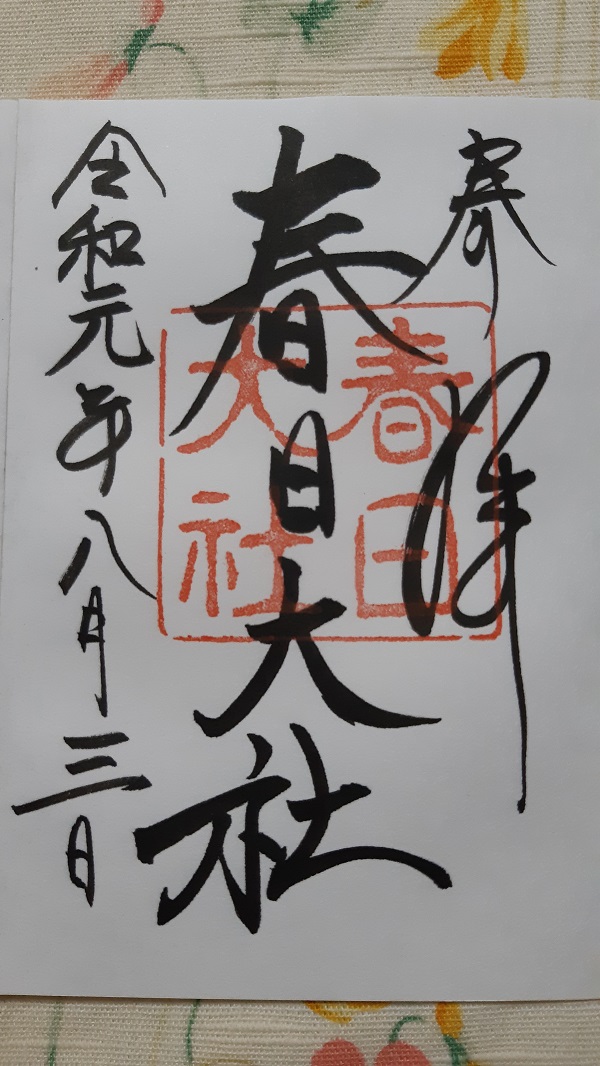 奉拝
春日大社
春日
大社
令和元年八月三日